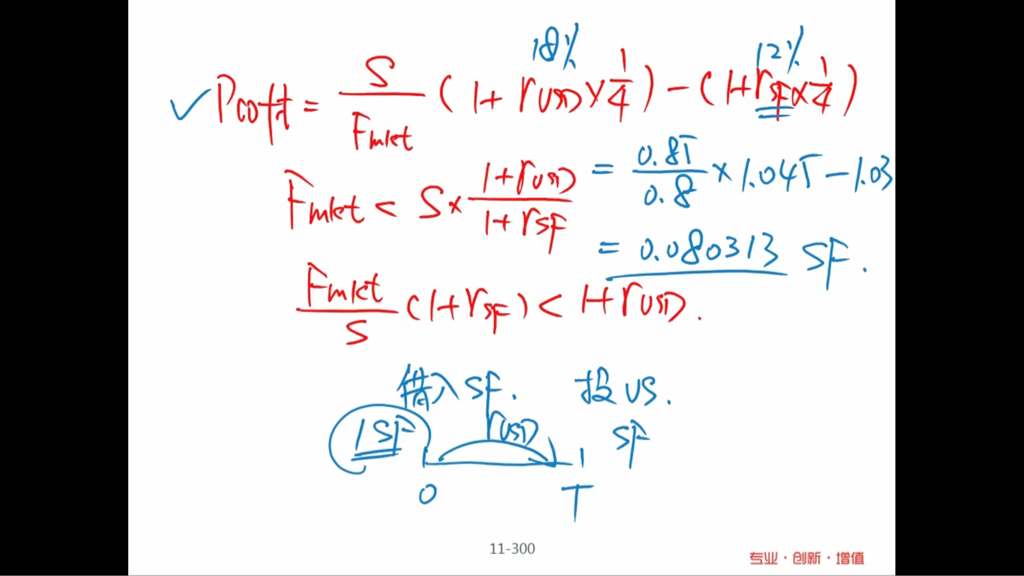 18% 12%
✓ Pcoft = S/Fmkt (1 + rUSD × 1/4) - (1 + rSF × 1/4)
Fmkt < S × 1+rUSD/1+rSF = 0.85/0.8 × 1.045 - 1.03
= 0.080313 SF.
Fmkt/S (1+rSF) < 1+rUSD.
借入 SF. 投 US.
1SF rUSD SF
0 T
11-300
专业·创新·增值